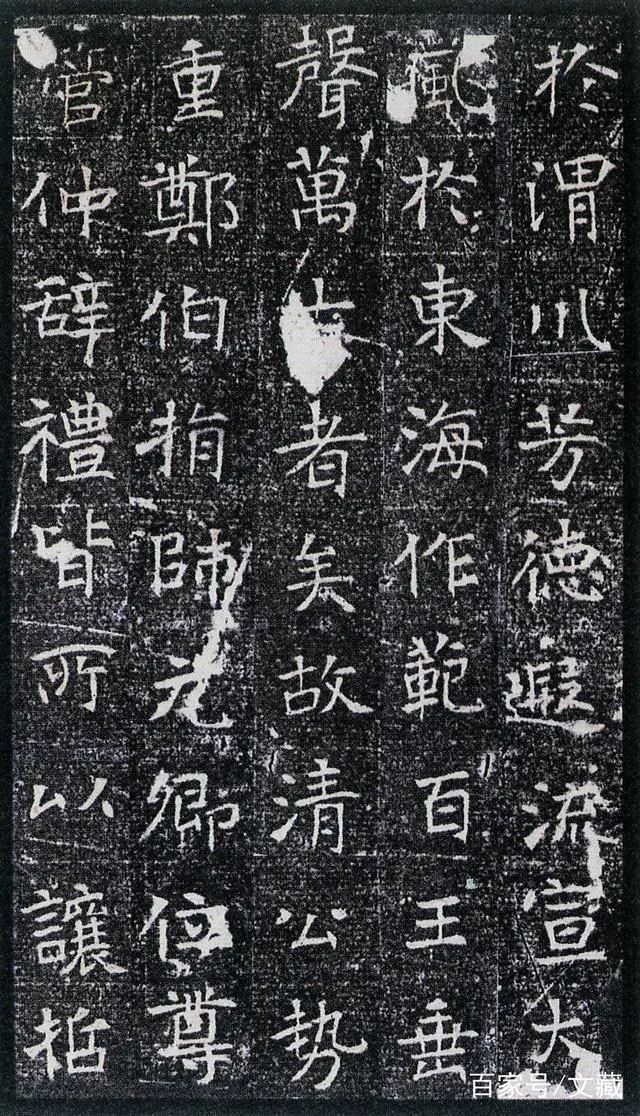 於渭川芳德遐流宣大
風於東海作範百王垂
聲萬古者矣故清公勢
重鄭伯捐師元卿位尊
管仲辭禮皆所以讓哲
百家号/文藏